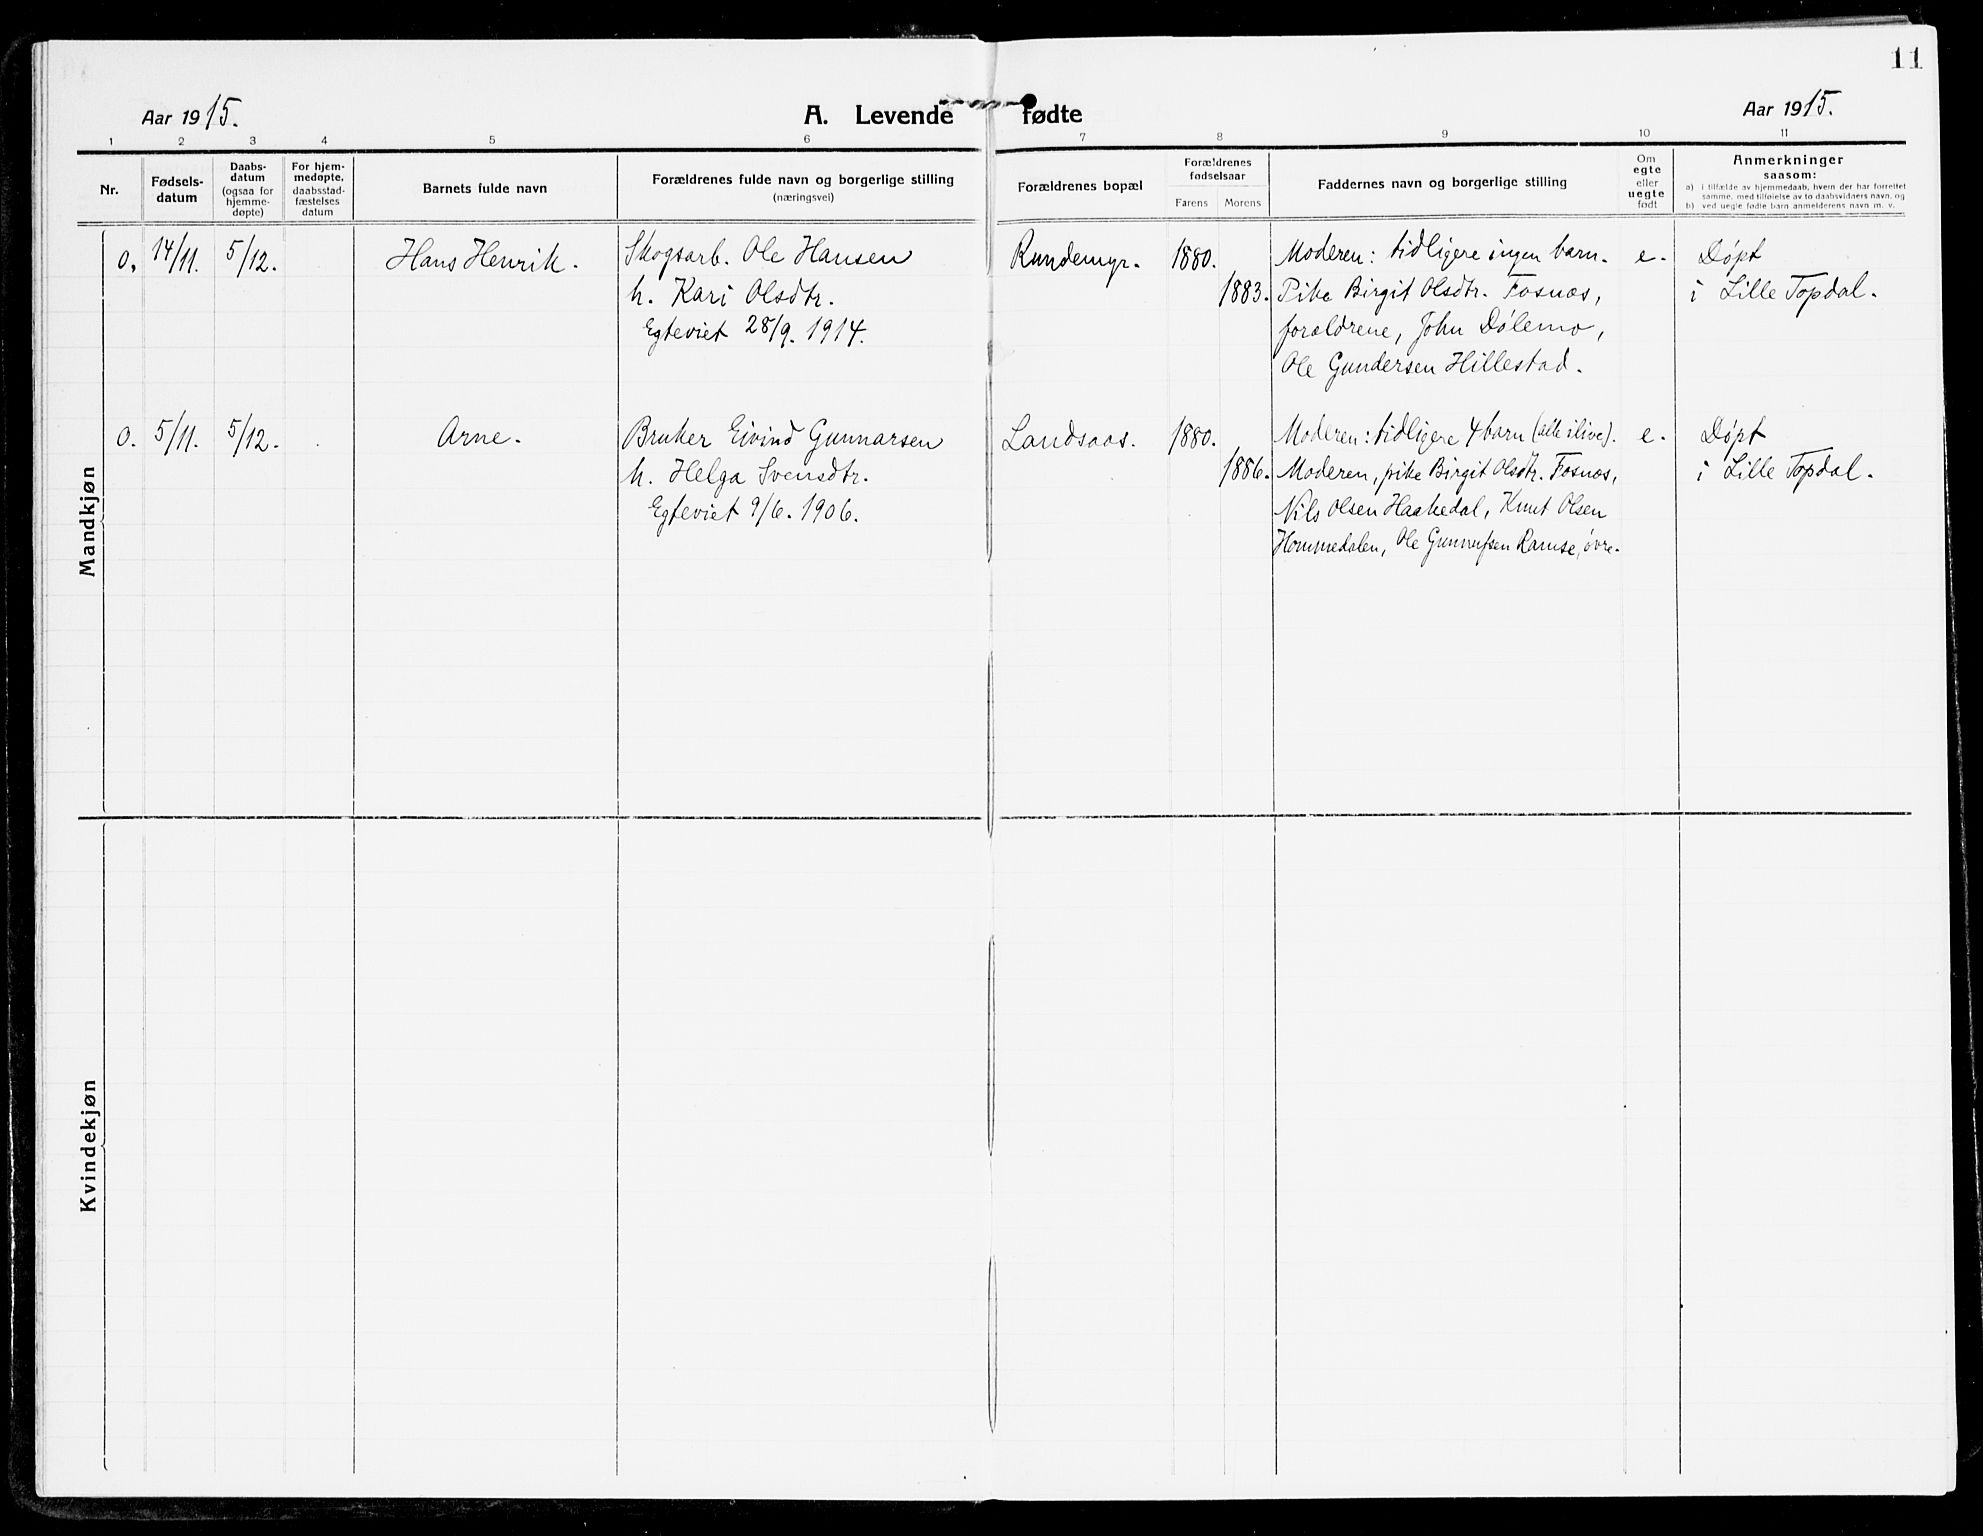 11
Aar 1915.
A. Levende fødte
Aar 1915.
1 2 3 4 5 6 7 8 9 10 11
Nr.
Fødsels-
datum
Daabs-
datum
(ogsaa for
hjemme-
døpte)
For hjem-
medøpte,
daabsstad-
fæstelses
datum
Barnets fulde navn
Forældrenes fulde navn og borgerlige stilling
(næringsvei)
Forældrenes bopæl
Forældrenes
fødselsaar
Farens Morens
Faddernes navn og borgerlige stilling
Om
egte
eller
uegte
født
Anmerkninger
saasom:
a) i tilfælde av hjemmedaab, hvem der har forrettet
samme, med tilføielse av to daabsvidners navn, og
b) ved uegte fødte barn anmelderens navn m. v.
Mandkjøn
0. 14/11. 5/12. Hans Henrik.
Skogsarb. Ole Hansen
h. Kari Olsdtr.
Egteviet 28/9. 1914.
Rundemyr. 1880.
1883.
Moderen: tidligere ingen barn.
Pike Birgit Olsdtr. Fosnæs,
forældrene, John Dølemo,
Ole Gundersen Hillestad.
e.
Døpt
i Lille Topdal.
0. 5/11. 5/12. Arne.
Bruker Eivind Gunnarsen
h. Helga Svensdtr.
Egteviet 9/6. 1906.
Landsaas. 1880.
1886.
Moderen: tidligere 4 barn (alle ilive).
Moderen, pike Birgit Olsdtr. Fosnæs,
Nils Olsen Haakedal, Knut Olsen
Hommedalen, Ole Gunnufsen Ramse, øvre.
e.
Døpt
i Lille Topdal.
Kvindekjøn